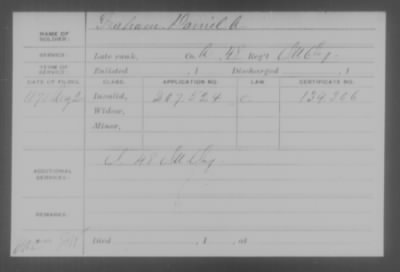 NAME OF SOLDIER: Graham Daniel A
SERVICE: Late rank, Co. A, 48 Reg't
TERM OF SERVICE: Enlisted , 1 Discharged , 1
DATE OF FILING. CLASS. APPLICATION NO. LAW. CERTIFICATE NO.
Invalid, 207.524 C 139.306
Widow,
Minor,
ADDITIONAL SERVICES: 48
REMARKS:
Died , 1 , at